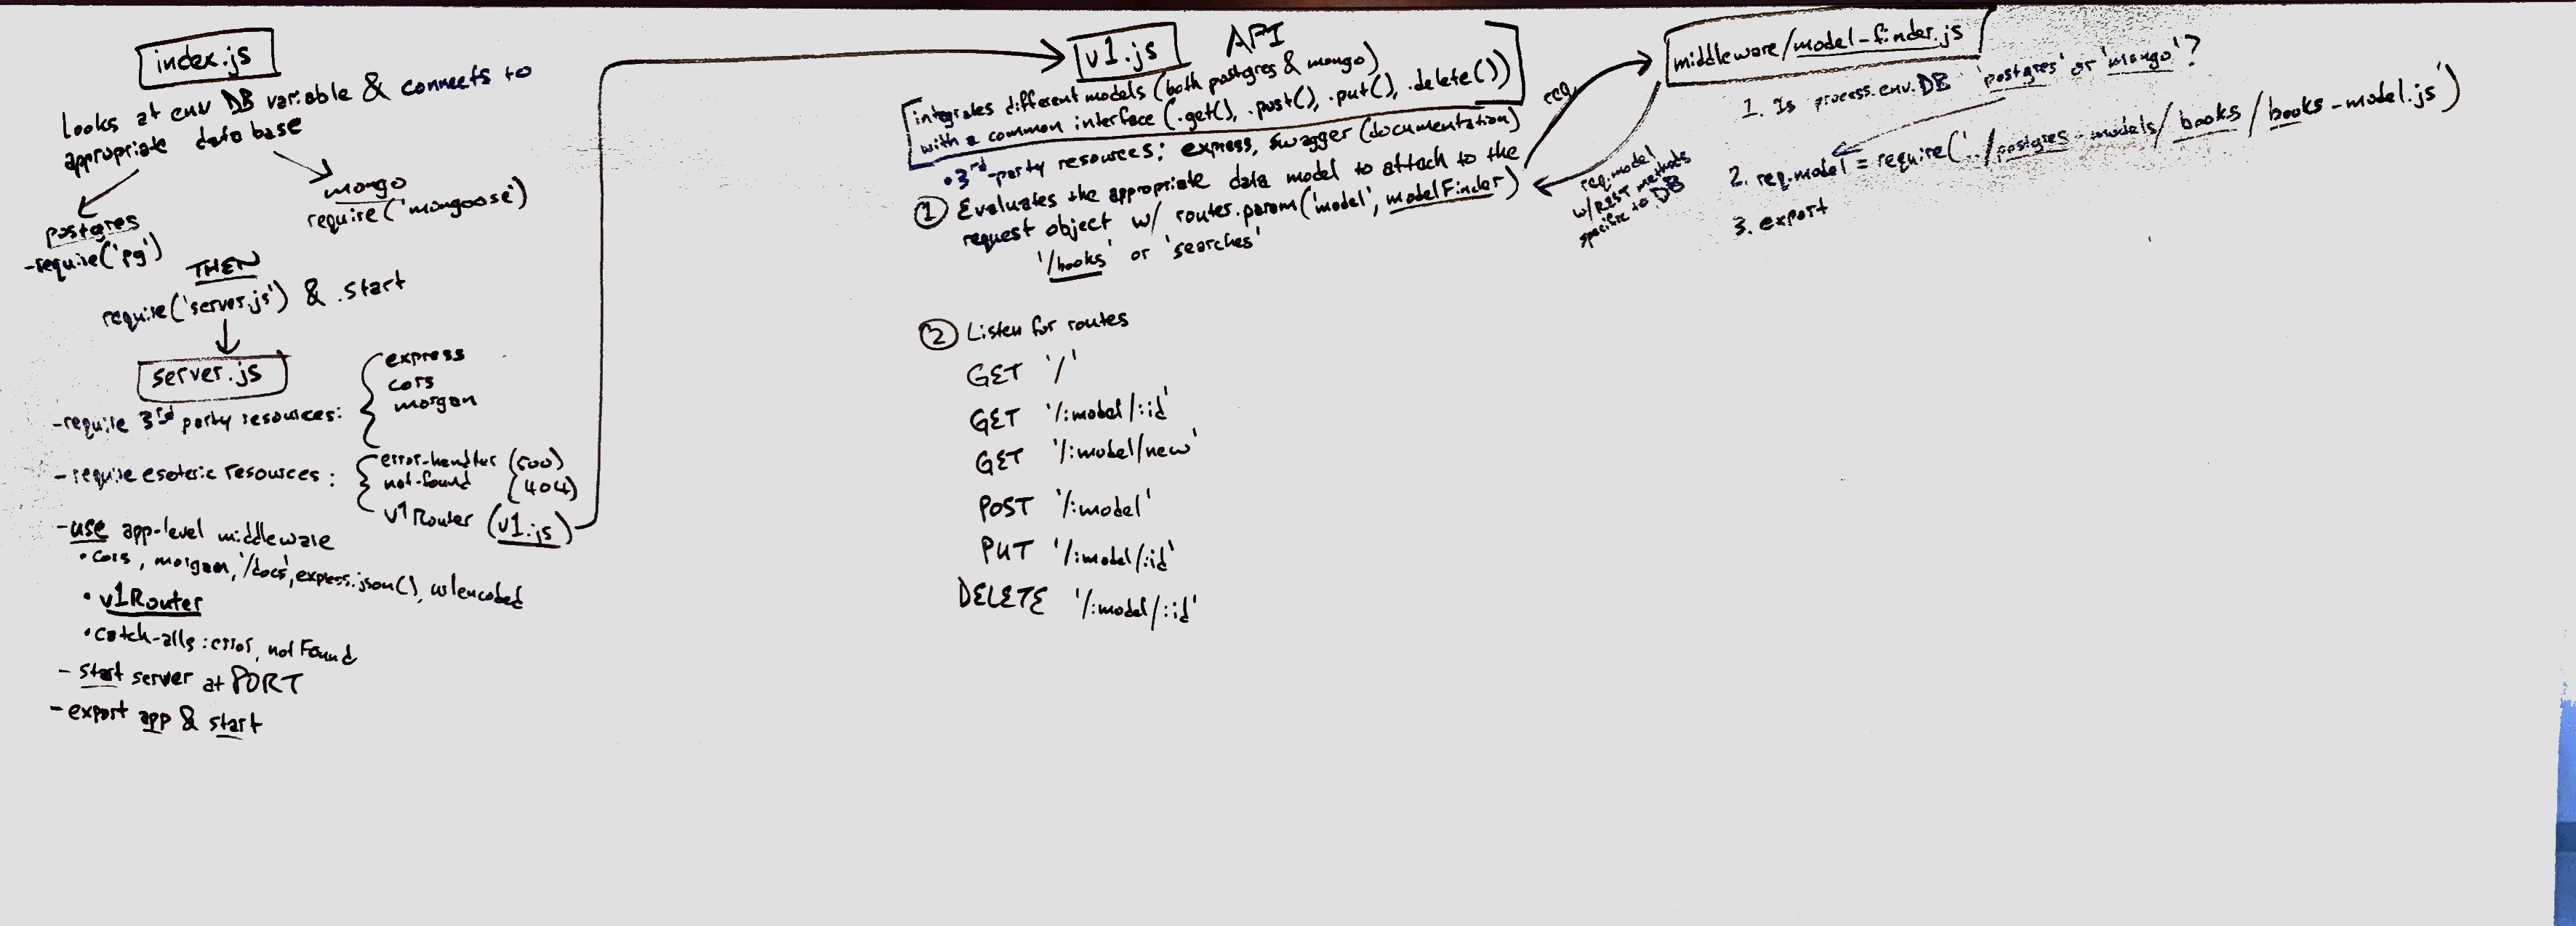 index.js
looks at env DB variable & connects to
appropriate database
postgres
-require('pg')
mongo
require('mongoose')
THEN
require('server.js') & .start
server.js
-require 3rd party resources:
express
cors
morgan
-require esoteric resources:
error-handler (500)
not-found (404)
v1Router (v1.js)
-use app-level middleware
•cors, morgan, '/docs', express.json(), urlencoded
•v1Router
•catch-alls: error, notFound
-start server at PORT
-export app & start
v1.js API
integrates different models (both postgres & mongo)
with a common interface (.get(), .post(), .put(), .delete())
•3rd-party resources: express, swagger (documentation)
1 Evaluates the appropriate data model to attach to the
request object w/ router.param('model', modelFinder)
'/books' or 'searches'
2 Listen for routes
GET '/'
GET '/:model/:id'
GET '/:model/new'
POST '/:model'
PUT '/:model/:id'
DELETE '/:model/:id'
req
req.model
w/REST methods
specific to DB
middleware/model-finder.js
1. Is process.env.DB 'postgres' or 'mongo'?
2. req.model = require('../postgres-models/books/books-model.js')
3. export